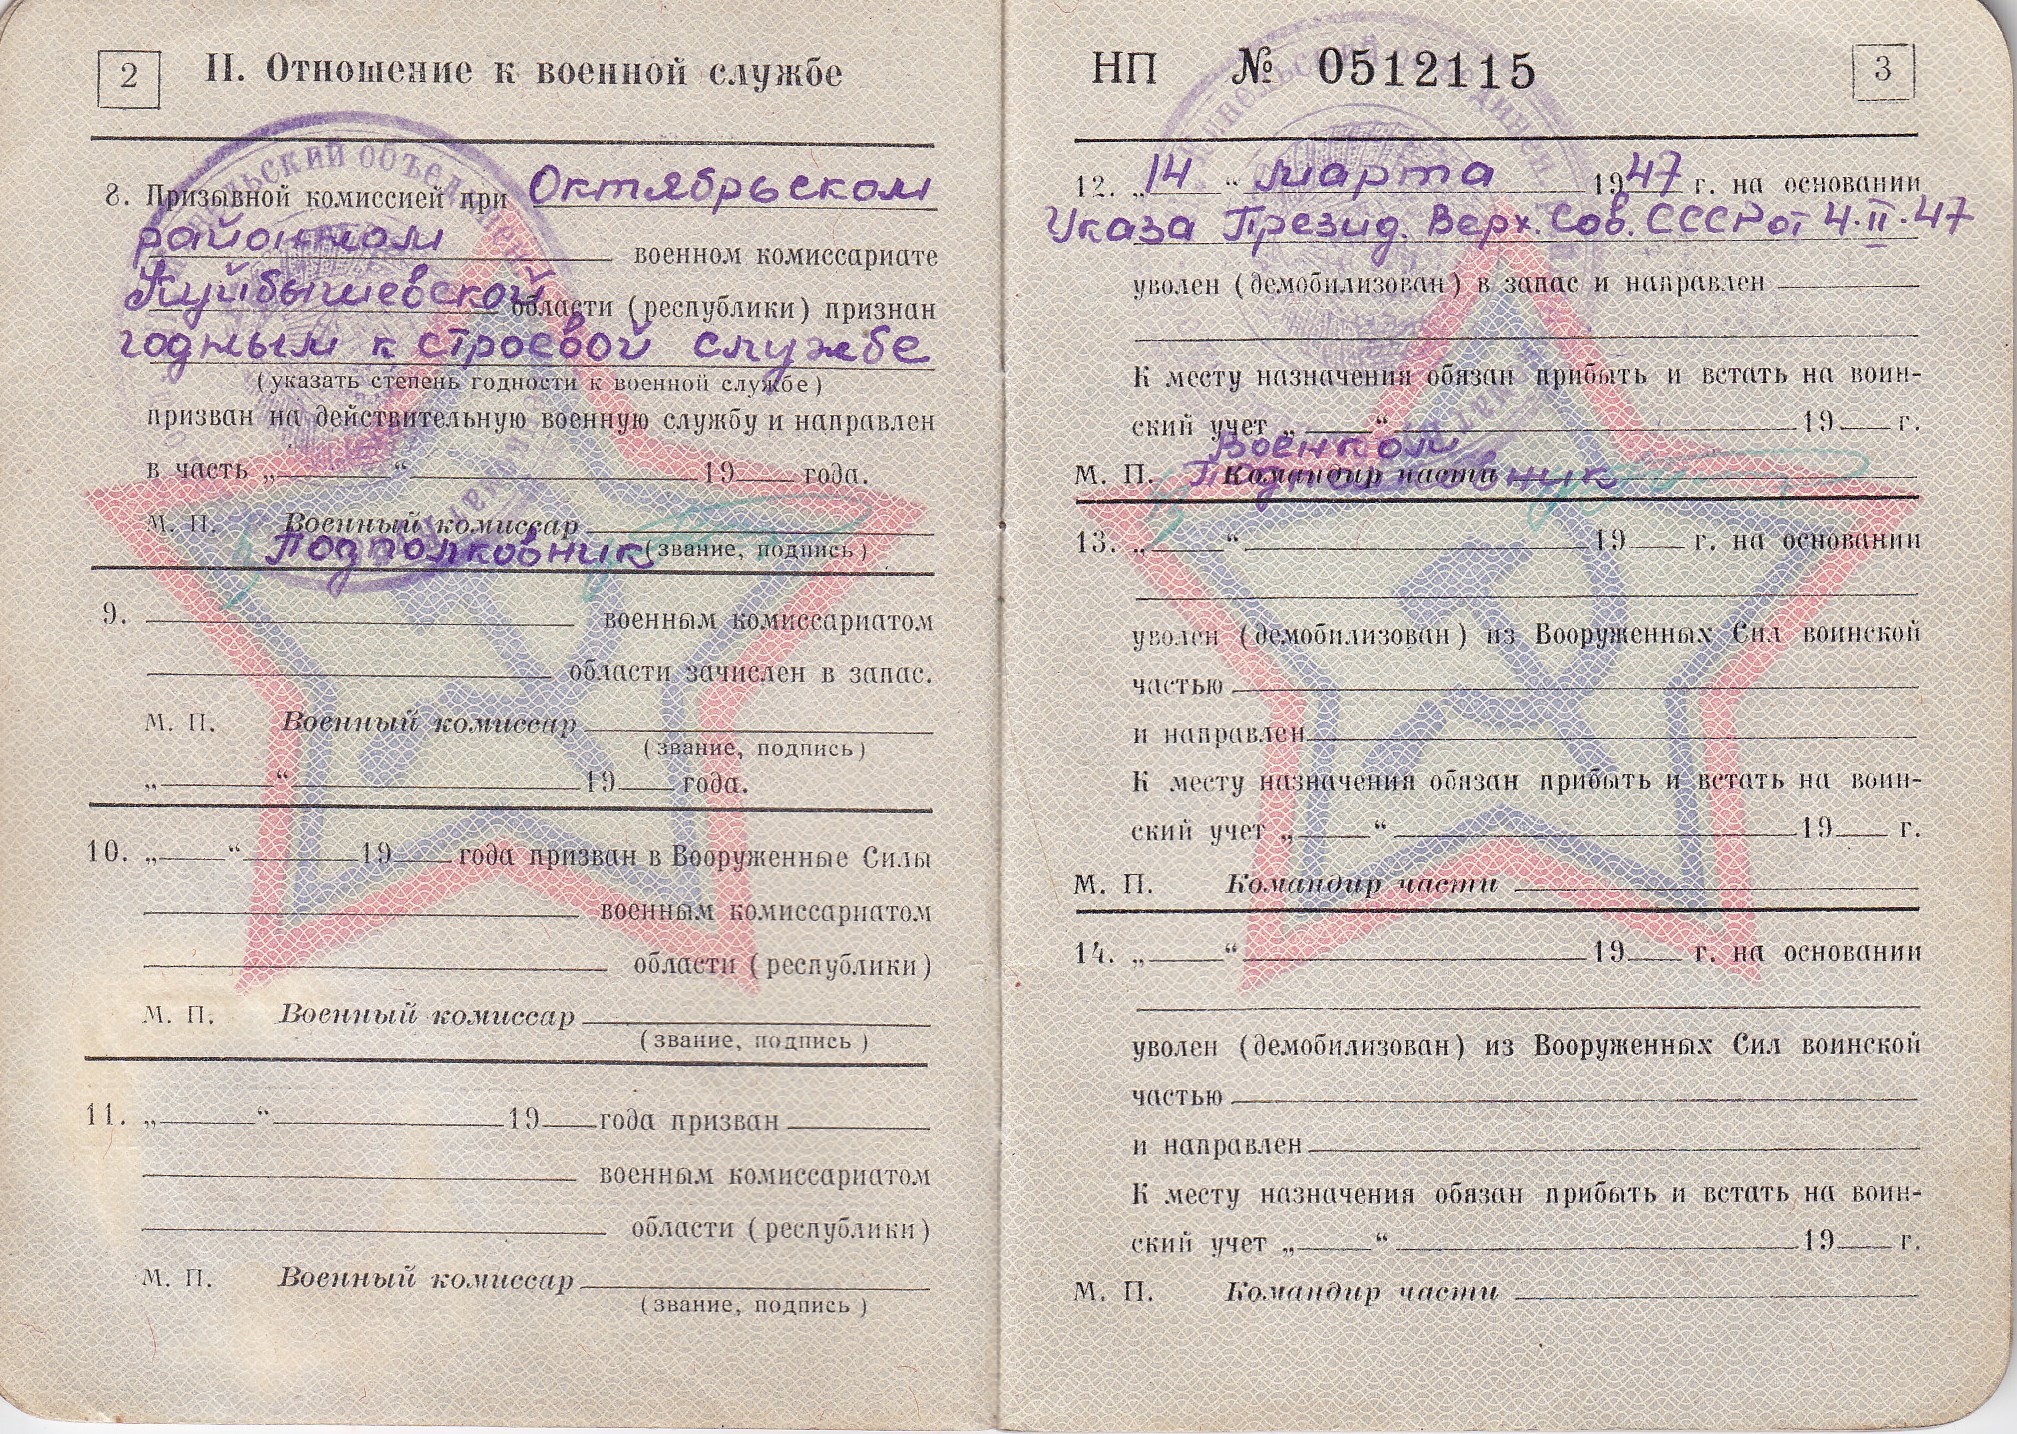 2
II. Отношение к военной службе
8. Призывной комиссией при Октябрьском
районном военном комиссариате
Куйбышевской области (республики) признан
годным к строевой службе
(указать степень годности к военной службе)
призван на действительную военную службу и направлен
в часть „ “ 19 года.
М. П. Военный комиссар
Подполковник (звание, подпись)
9. военным комиссариатом
области зачислен в запас.
М. П. Военный комиссар
(звание, подпись)
„ “ 19 года.
10. „ “ 19 года призван в Вооруженные Силы
военным комиссариатом
области (республики)
М. П. Военный комиссар
(звание, подпись)
11. „ “ 19 года призван
военным комиссариатом
области (республики)
М. П. Военный комиссар
(звание, подпись)
НП № 0512115
3
12. „14“ марта 1947 г. на основании
Указа Презид. Верх. Сов. СССР от 4.II.47
уволен (демобилизован) в запас и направлен
К месту назначения обязан прибыть и встать на воин-
ский учет „ “ 19 г.
Военком
М. П. Командир части
Подполковник
13. „ “ 19 г. на основании
уволен (демобилизован) из Вооруженных Сил воинской
частью
и направлен
К месту назначения обязан прибыть и встать на воин-
ский учет „ “ 19 г.
М. П. Командир части
14. „ “ 19 г. на основании
уволен (демобилизован) из Вооруженных Сил воинской
частью
и направлен
К месту назначения обязан прибыть и встать на воин-
ский учет „ “ 19 г.
М. П. Командир части